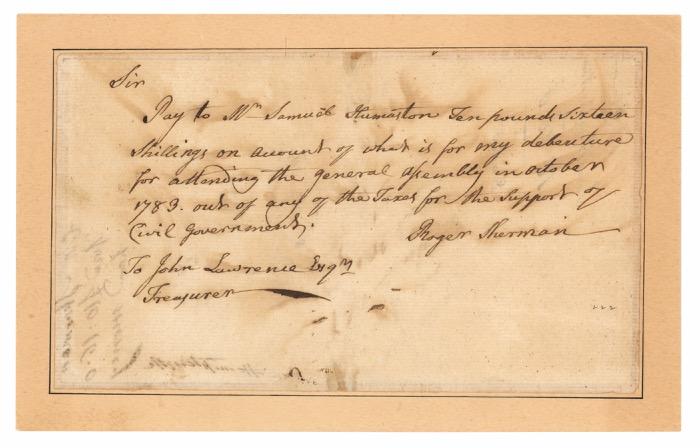 Sir
Pay to Mr Samuel Humaston Ten pounds sixteen
shillings on account of what is for my debenture
for attending the general assembly in october
1783. out of any of the Taxes for the Support of
Civil Government.
Roger Sherman
To John Lawrence Esqr
Treasurer